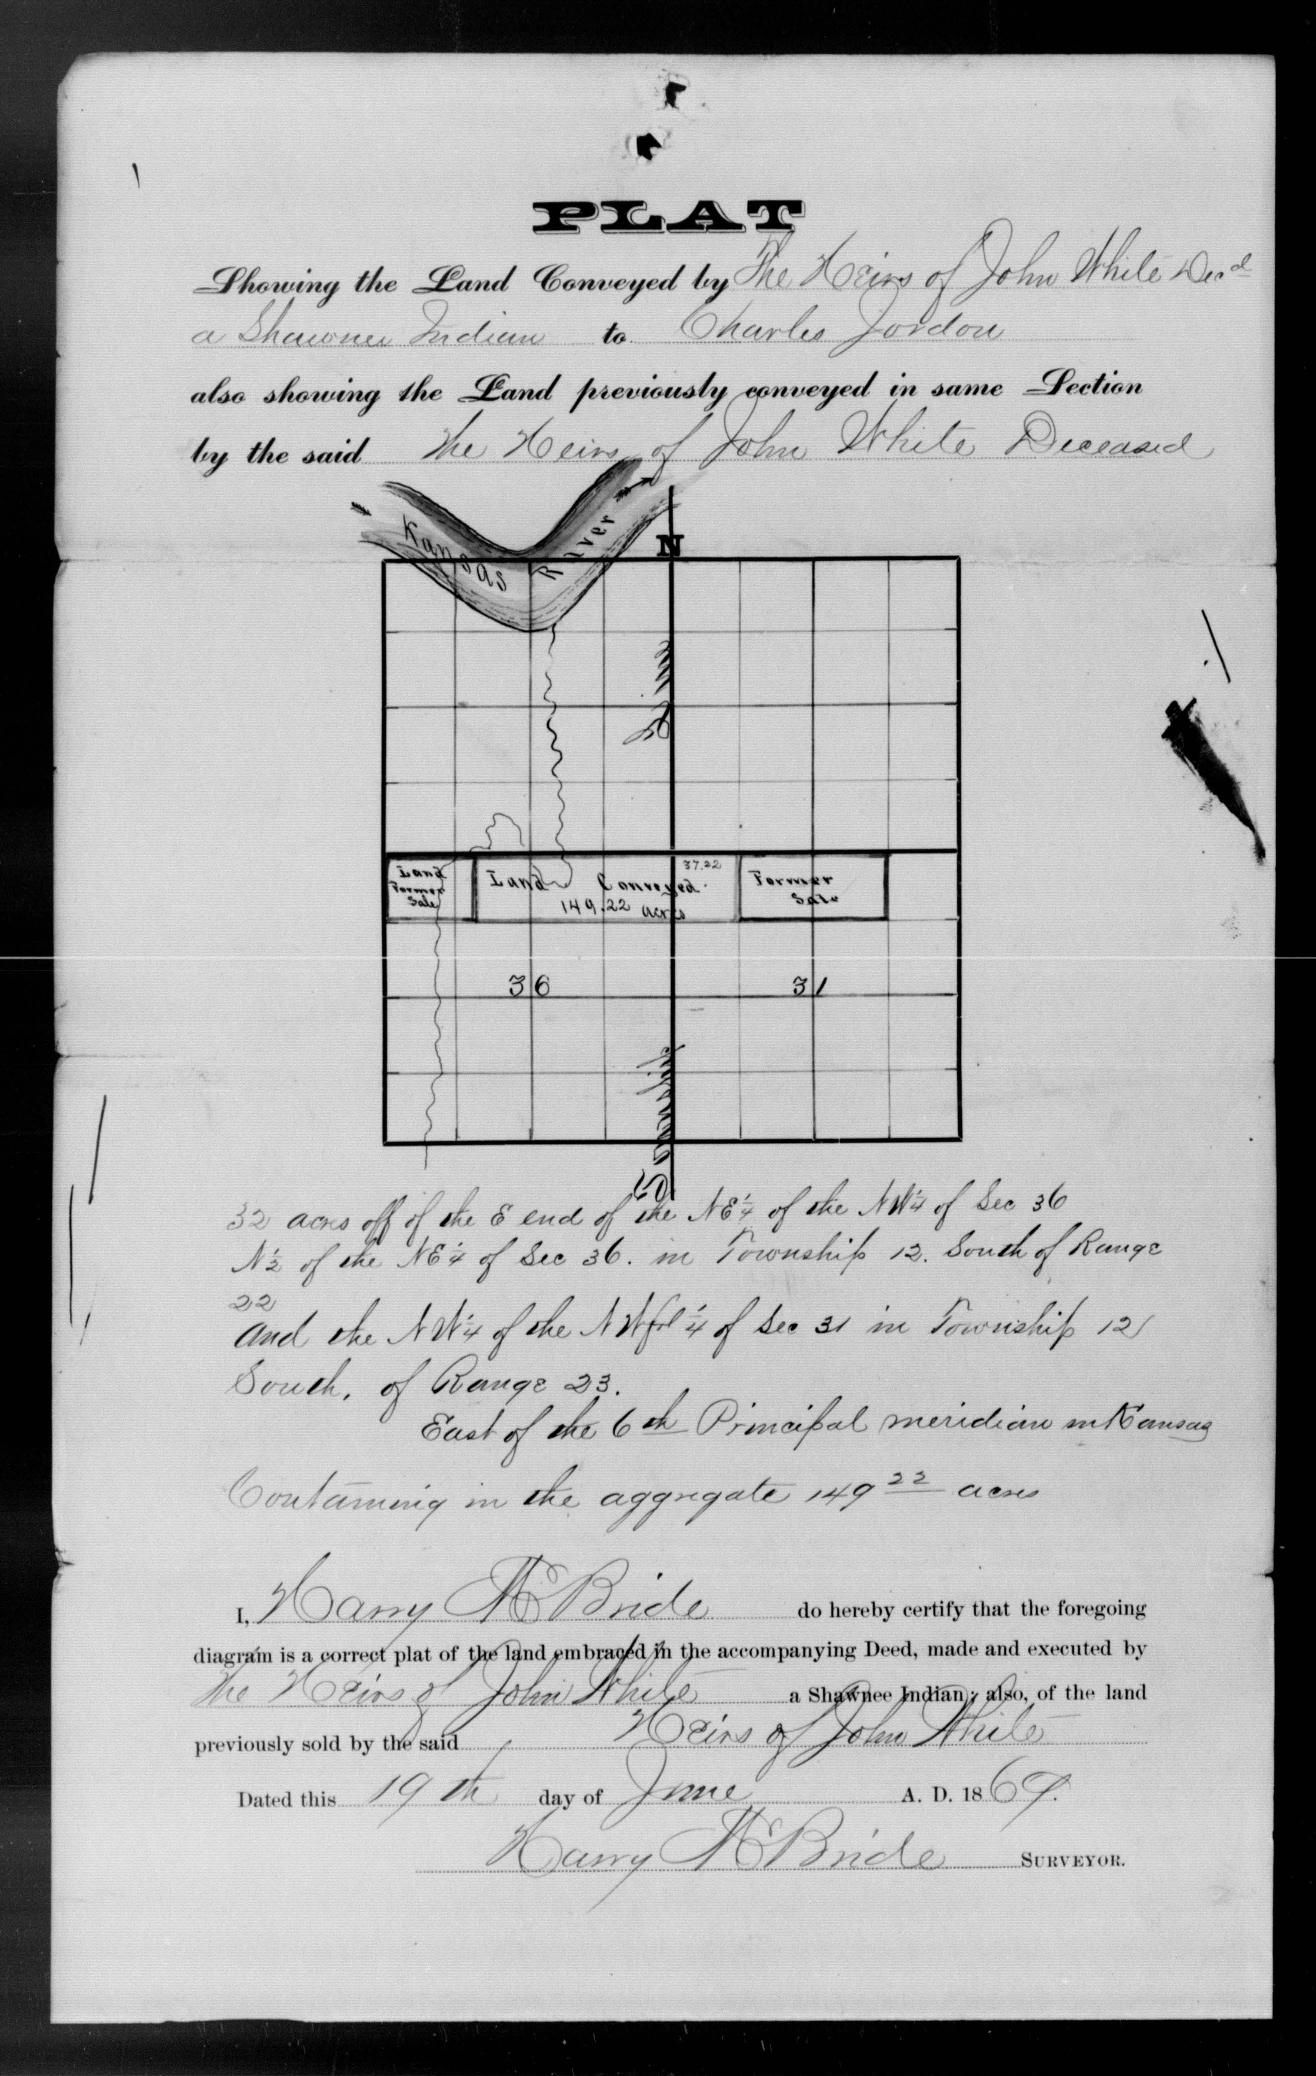 PLAT
Showing the Land Conveyed by The Heirs of John White Decd
a Shawnee Indian to Charles Jordon
also showing the Land previously conveyed in same Section
by the said The Heirs of John White Deceased
Kansas River
N
Line
Land Former Sale
Land Conveyed
149.22 acres
37.22
Former Sale
36
31
Township
32 acres off of the E end of the NE¼ of the NW¼ of Sec 36
N½ of the NE¼ of Sec 36. in Township 12. South of Range
22
and the NW¼ of the NWfrl¼ of Sec 31 in Township 12
South, of Range 23.
East of the 6th Principal meridian in Kansas
Containing in the aggregate 149 22 acres
I, Harry McBride do hereby certify that the foregoing
diagram is a correct plat of the land embraced in the accompanying Deed, made and executed by
The Heirs of John White a Shawnee Indian; also, of the land
previously sold by the said Heirs of John White
Dated this 19th day of June A. D. 1869.
Harry McBride SURVEYOR.